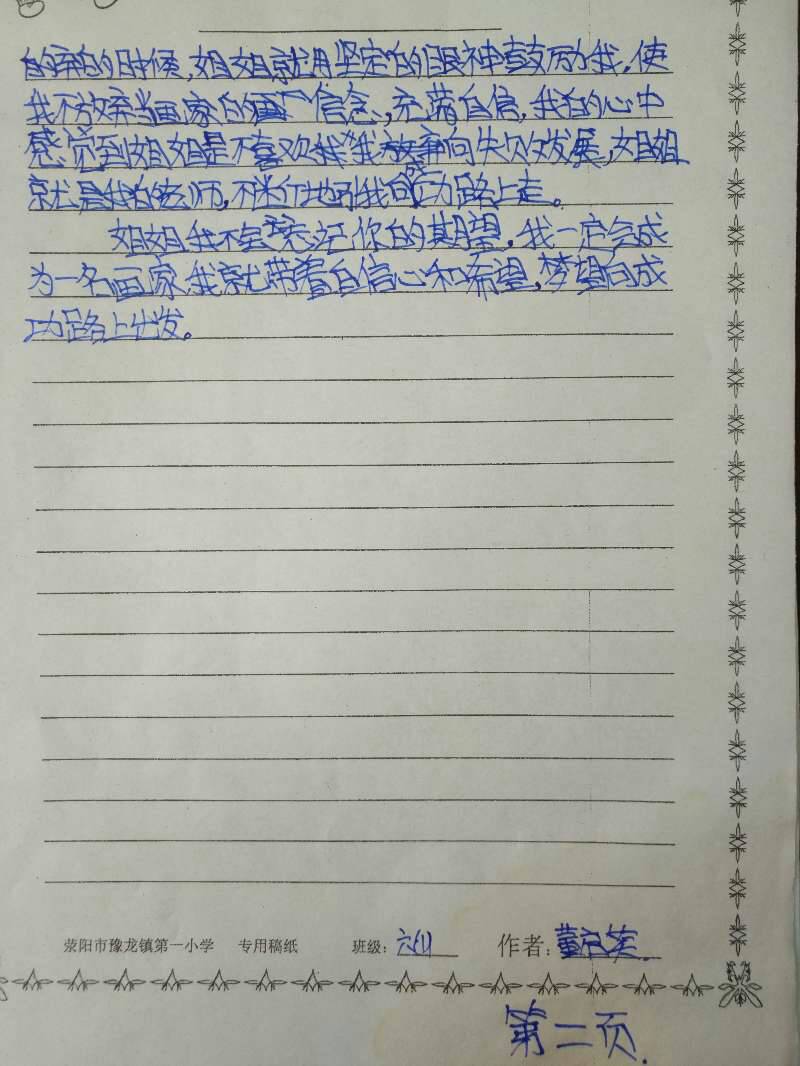 的时候,姐姐就用坚定的眼神鼓励我,使
我不放弃当画家的信念,充满自信,我的心中
感觉到姐姐是不喜欢我向失败发展,姐姐
就是我的老师,不断地引我向成功路上走。
姐姐我不会忘记你的期望,我一定会成
为一名画家,我就带着自信心和希望,梦望向成
功路上出发。
荥阳市豫龙镇第一小学 专用稿纸 班级: 作者:董
第二页.